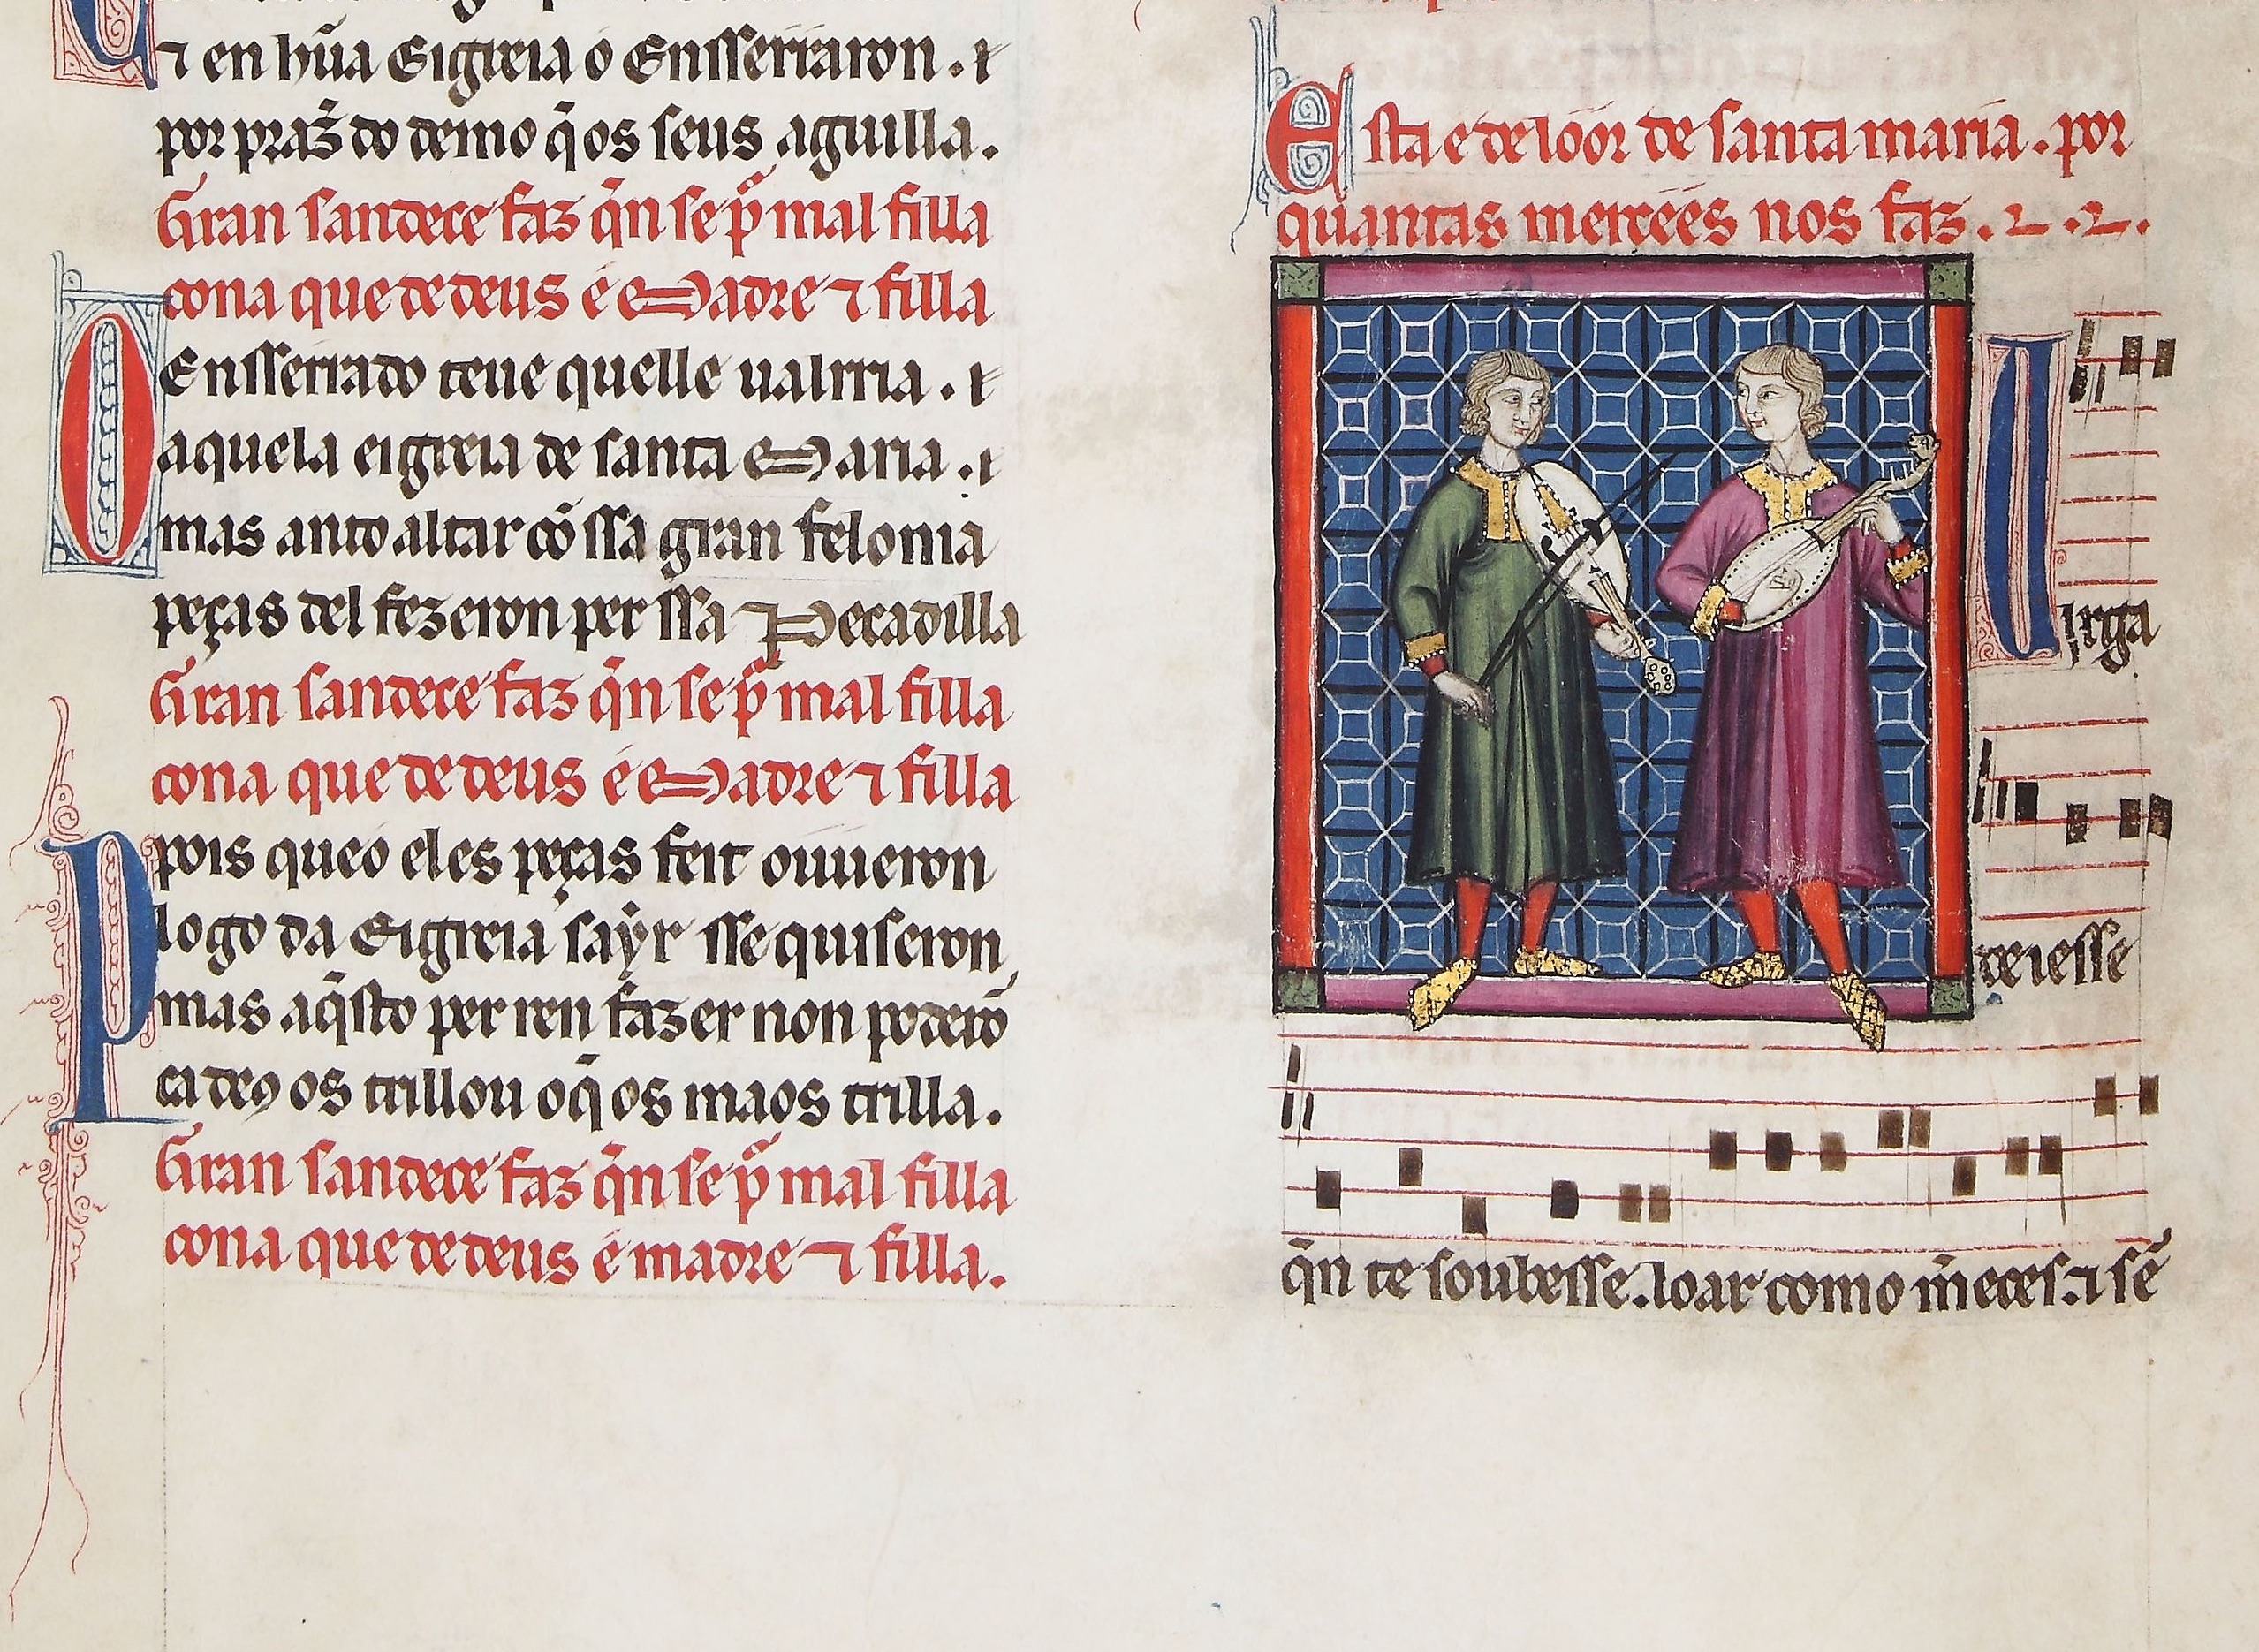 ⁊ en hũa Eigreia o Ensserraron . ⁊
por praz̃ do demo q̄ os seus aguilla.
Gran sandece faz q̄n se p̃ mal filla
cona que de deus é Madre ⁊ filla
O Ensserrado teue quelle ualrria . ⁊
aquela eigreia de santa Maria . ⁊
mas anto altar cõ ssa gran felonia
peças del fezeron per ssa Pecadilla
Gran sandece faz q̄n se p̃ mal filla
cona que de deus é Madre ⁊ filla
Ppois queo eles peças feit ouueron
logo da Eigreia sayr sse quiseron
mas aq̄sto per ren fazer non poderõ
ca deꝯ os trillou o q̄ os maos trilla.
Gran sandece faz q̄n se p̃ mal filla
cona que de deus é madre ⁊ filla.
Esta e de lóor de santa maria. por
quantas mercées nos faz.
Uirga
de iesse
q̄n te soubesse. loar como m̃eces. ⁊ sẽ